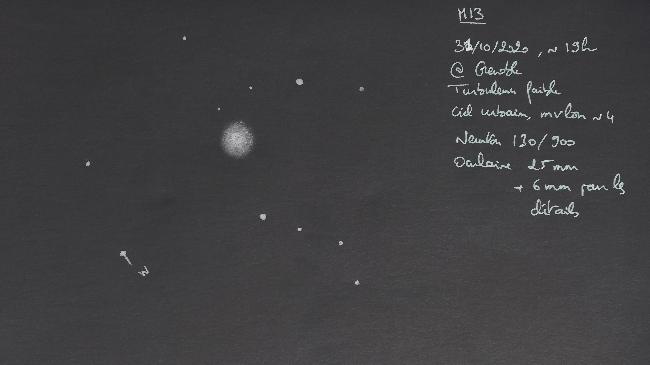 M13
31/10/2020, ~ 19h
@ Grenoble
Turbulence faible
Ciel urbain, mvlon ~4
Newton 130/900
Oculaire 25 mm
+ 6 mm pour les
détails
N